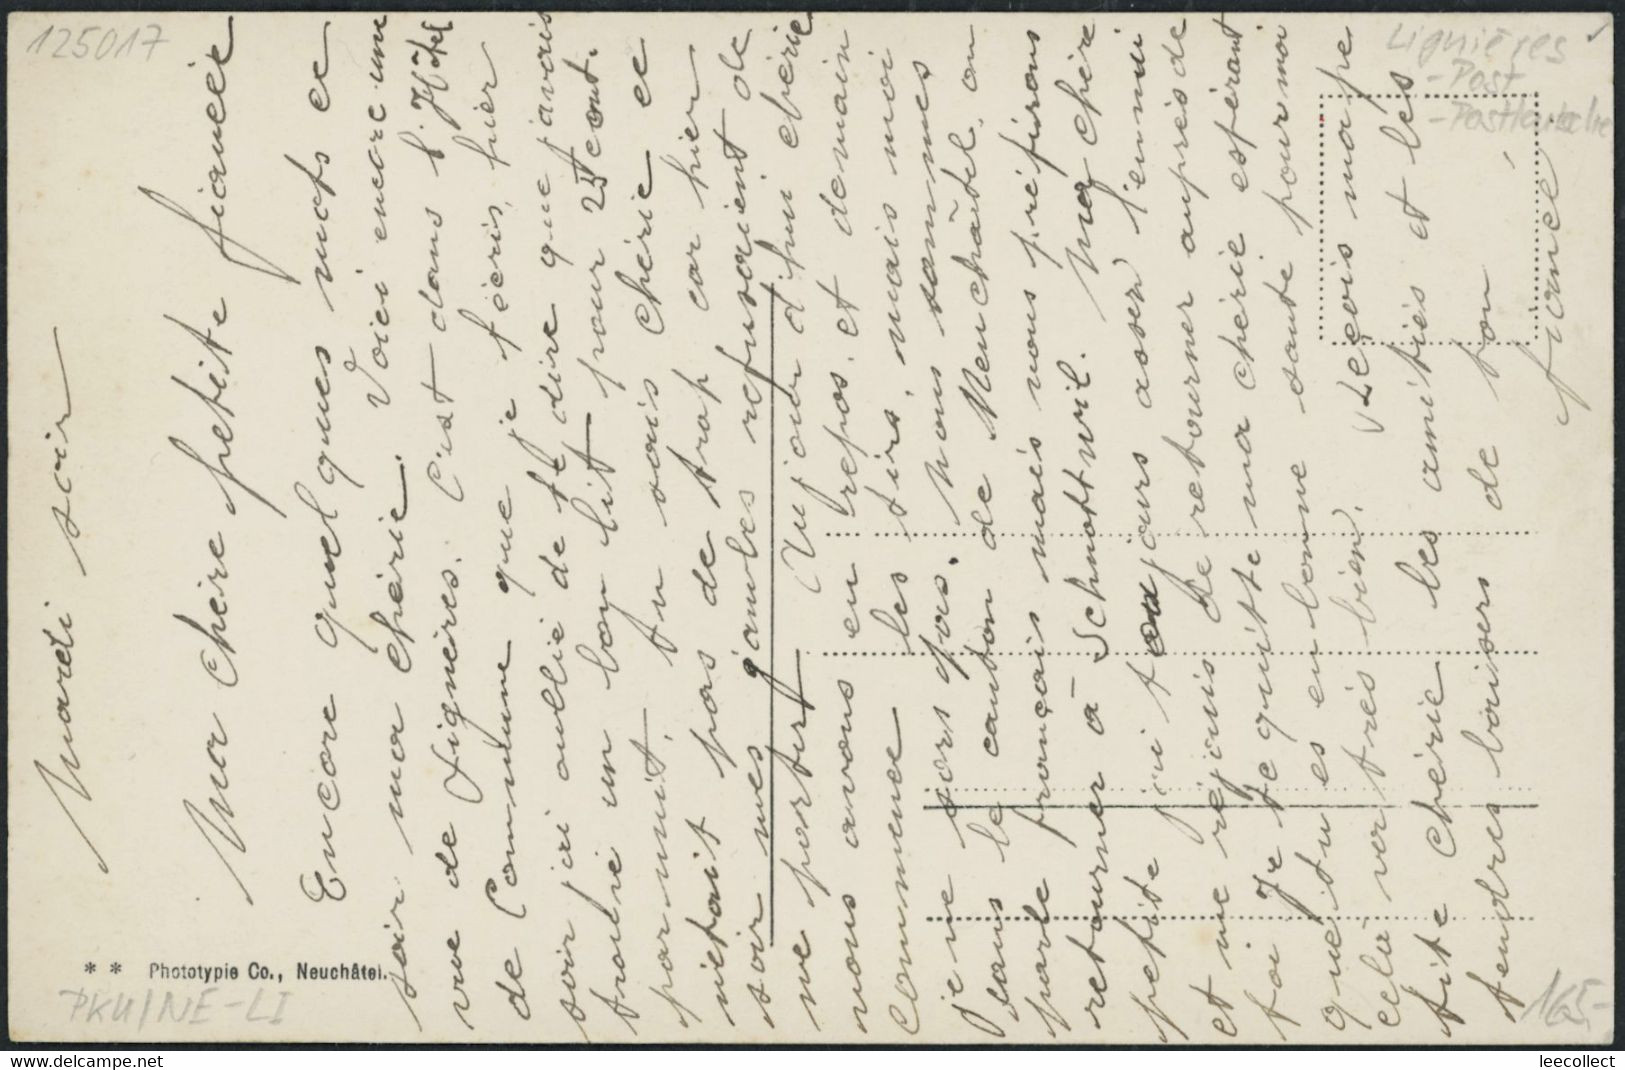 Mardi soir
Ma chère petite fiancée
Encore quelques mots ce
soir ma chérie. Voici encore une
vue de Lignières. C'est dans l'Hôtel
de Commune que je t'écris, hier
soir j'ai oublié de te dire que j'avais
trouvé un bon lit pour 25 cent.
par nuit. tu sais chérie ce
n'était pas de trop car hier
soir mes jambes refusaient de
me porter Aujourd'hui chérie
nous avons eu repos. et demain
commence les tirs, mais moi
je ne sors pas. Nous sommes
dans le canton de Neuchâtel, on
parle français mais nous préférons
retourner à Schnottwil. Ma chère
petite j'ai toujours assez d'ennui
et me réjouis de retourner auprès de
toi Je te quitte ma chérie espérant
que tu es en bonne santé pour moi
cela va très bien. Reçois ma pe
tite chérie les amitiés et les
tendres baisers de ton
fiancé
* * Phototypie Co., Neuchâtel.
125017
PKU/NE-LI
Lignières
- Post
165.-
www.delcampe.net
leecollect